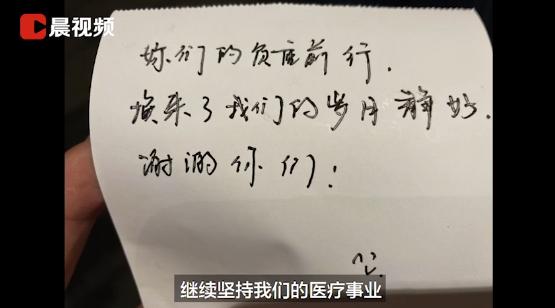 晨视频
妳们的负重前行,
换来了我们的岁月静好.
谢谢你们!
继续坚持我们的医疗事业